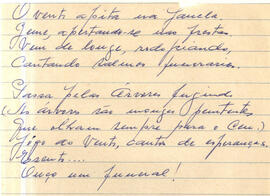 O vento apita na janela.
Geme, apertando-se nas frestas.
Vem de longe, rodopiando,
Cantando salmos funerários.
Passa pelas Árvores fugindo
(As árvores são monges penitentes
Que olham sempre para o Céu.)
Fogo do Vento, cantos de esperanças.
Escuto....
Ouço um funeral!